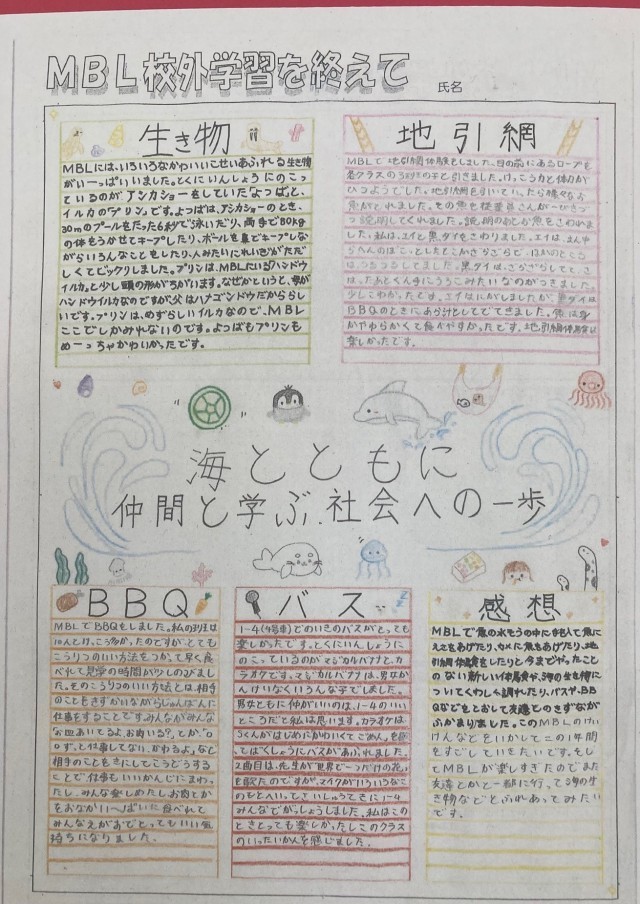 MBL校外学習を終えて
氏名
生き物
MBLには、いろいろなかわいいこせいあふれる生き物
がいーっぱいいました。とくにいんしょうにのこっ
ているのがアシカショーをしていた「よっぱ」と、
イルカの「プリン」です。よっぱは、アシカショーのとき、
30mのプールをたった6秒で泳いだり、両手で80kg
の体をうかせてキープしたり、ボールを鼻でキープしな
がらいろんなことをしたり、人みたいにれいぎがただ
しくてビックリしました。プリンは、MBLにいるハンドウ
イルカと少し頭の形がちがいます。なぜかというと、母が
ハンドウイルカなのですが父はハナゴンドウだかららし
いです。プリンは、めずらしいイルカなので、MBL
ここでしかみれないのです。よっぱもプリンも
めーっちゃかわいかったです。
地引網
MBLで地引網体験をしました。目の前にあるロープを
各クラスの3班の子と引きました。けっこう力と体力が
ひつようでした。地引網を引いていたら様々なお
魚がとれました。その魚を従業員さんが一つ一つ
説明してくれました。説明のあとお魚をさわれま
した。私は、エイと黒ダイをさわりました。エイは、まん中
つるつるしてました。黒ダイは、
少しこわかったです。エイはにがしましたが、黒ダイは
BBQのときにあら汁としてでてきました。
やわらかくて食べやすかったです。地引網体験は
楽しかったです。
海とともに
仲間と学ぶ社会への一歩
BBQ
MBLでBBQをしました。私の3班は
10人でけっこう多かったのですが、とても
こうりつのいい方法をつかって早く食
べれて見学の時間が少しのびまし
た。そのこうりつのいい方法とは、相手
のことをきづかいながらじゅんばんに
仕事をすることです。みんながみんな
「お皿あいてるよ、お肉いる?」とか、「〇〇
ず。と仕事してない、かわるよ」など
相手のことを気にしてこうどうする
ことで仕事もいいかんじにまわっ
たし、みんな楽しめたし、お肉とか
をおなかいーっぱいに食べれて
みんなえがおでとってもいい気
持ちになりました。
バス
1-4(4号車)でのいきのバスがとっても
楽しかったです。とくにいんしょうに
のこっているのがマジカルバナナと、カ
ラオケです。マジカルバナナは、男女か
んけいなくいろんな子でしました。
男女ともに仲がいいのは、1-4のいい
ところだと私は思います。カラオケは、
うくんがはじめにかわいくてごめん。を歌っ
てばくしょうにバスがあふれました。
2曲目は、先生が「世界で一つだけの花」
を歌ったのですが、マイクがいろいろなこ
のもとへいって、さいしゅうてきに1-4
みんなでがっしょうしました。私はこの
ときとっても楽しかったしこのクラス
のいったいかんを感じました。
感想
MBLで魚の水そうの中に手を入れて魚に
えさをあげたり、カメに魚をあげたり、地
引網体験をしたりと今までやったこと
のない新しい体験や、海の生き物に
ついてくわしく調べれたり、バスや、BB
Qなどをとおして友達とのきずながふ
かまりました。このMBLのけい
けんなどをいかしてこの1年間
をすごしていきたいです。そし
てMBLが楽しすぎたのでまた
友達とかと一緒に行って海の生
き物などとふれあってみたい
です。